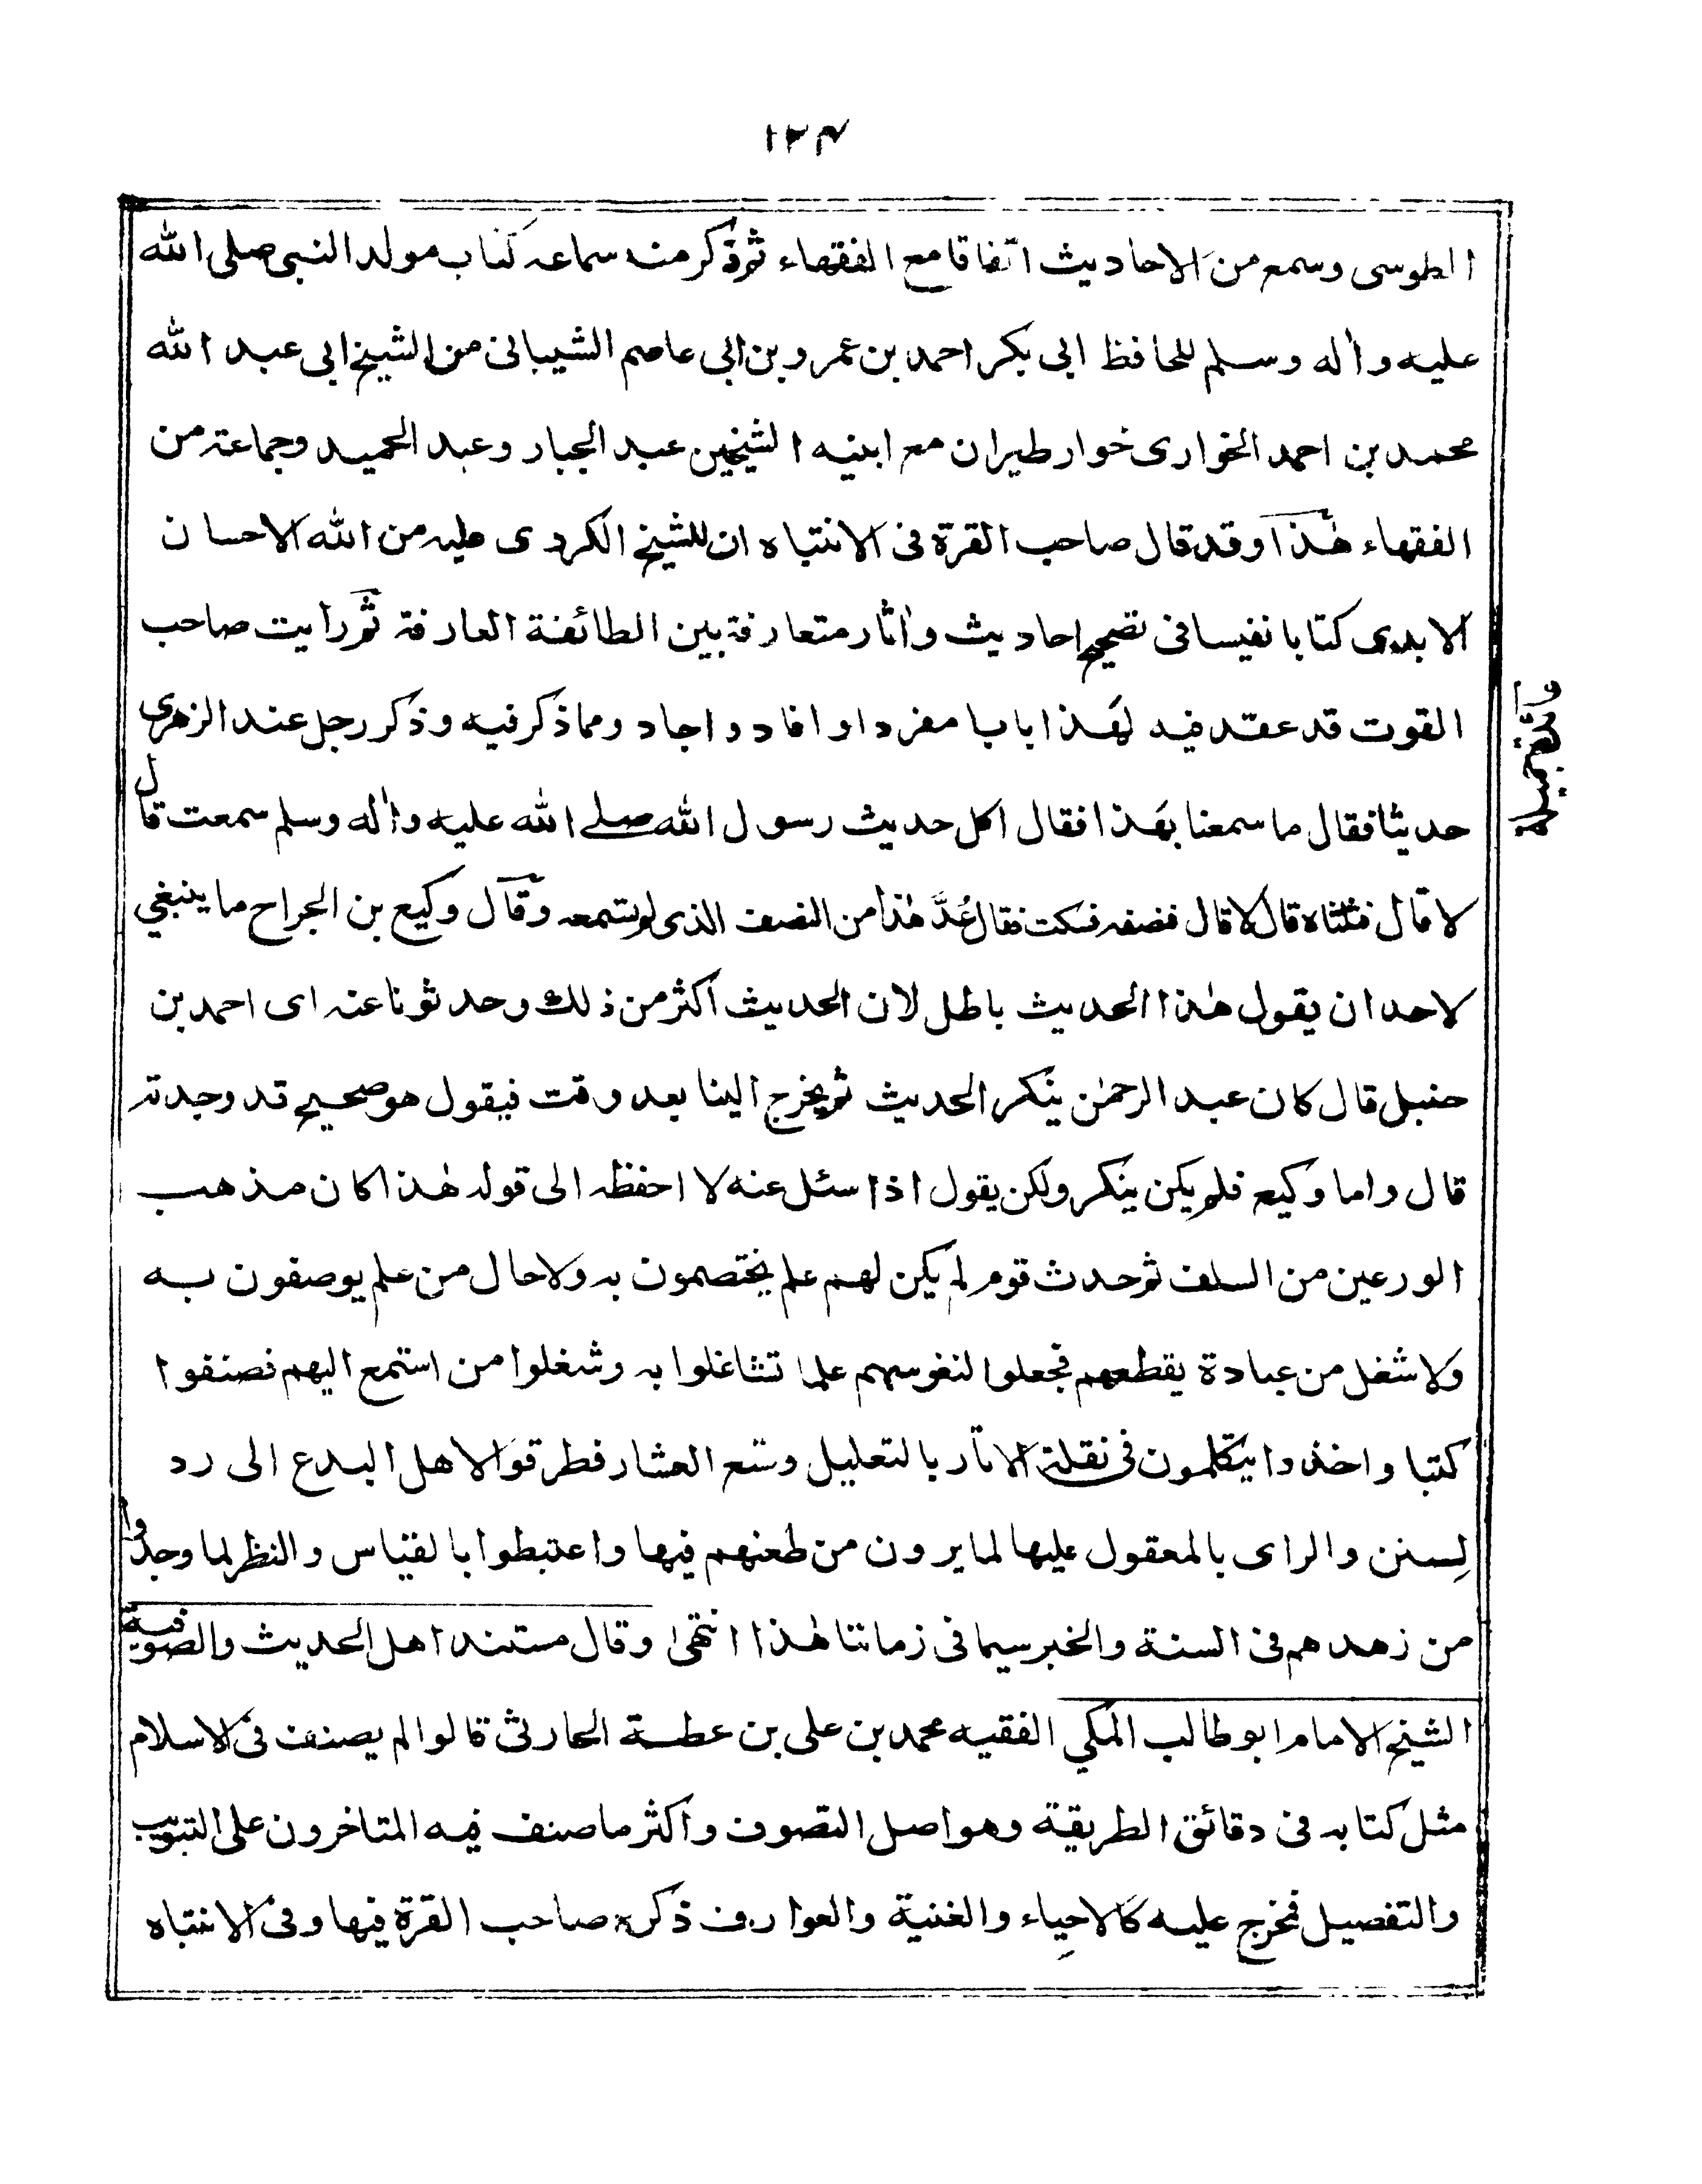 ١٢٤
الطوسى وسمع من الاحاديث اتفاقا مع الفقهاء ثم ذكر منه سماعه كتاب مولد النبى صلى الله
عليه واٰله وسلم للحافظ ابى بكر احمد بن عمرو بن ابى عاصم الشيبانى من الشيخ ابى عبد الله
محمد بن احمد الخوارى خوار طبران مع ابنيه الشيخين عبد الجبار وعبد الحميد وجماعة من
الفقهاء هٰذا وقد قال صاحب القرة فى الانتباه ان للشيخ الكردى عليه من الله الاحسان
الابدى كتابا نفيسا فى تصحيح احاديث واٰثار متعارفة بين الطائفة العارفة ثم رايت صاحب
القوت قد عقد فيه لهذا بابا مفردا وافاد واجاد ومما ذكر فيه وذكر رجل عند الزهرى
حديثا فقال ما سمعنا بهذا فقال اكل حديث رسول الله صلے الله عليه واٰله وسلم سمعت قال
لا قال فثلثاه قال لا قال فنصفه فسكت فقال عُدَّ هٰذا من النصف الذى لم تسمعه وقال وكيع بن الجراح ما ينبغي
لاحد ان يقول هٰذا الحديث باطل لان الحديث اكثر من ذلك وحدثونا عنه اى احمد بن
حنبل قال كان عبد الرحمٰن ينكر الحديث ثم يخرج الينا بعد وقت فيقول هو صحيح قد وجدته
قال واما وكيع فلم يكن ينكر ولكن يقول اذا سئل عنه لا احفظه الى قوله هٰذا كان مذهب
الورعين من السلف ثم حدث قوم لم يكن لهم علم يختصمون به ولا حال من علم يوصفون به
ولا شغل من عبادة يقطعهم فجعلوا لنفوسهم علما تشاغلوا به وشغلوا من استمع اليهم فصنفوا
كتبا واخذوا يتكلمون فى نقلة الاثار بالتعليل وتتبع العثار فطرقوا لاهل البدع الى رد
لسنن والراى بالمعقول عليها لما يرون من طعنهم فيها واغتبطوا بالقياس والنظر لما وجدوا
من زهدهم فى السنة والخبر سيما فى زماننا هٰذا انتهىٰ وقال مستند اهل الحديث والصوفية
الشيخ الامام ابو طالب المكي الفقيه محمد بن على بن عطية الحارثى قالوا لم يصنف فى الاسلام
مثل كتابه فى دقائق الطريقة وهو اصل التصوف واكثر ما صنف فيه المتاخرون على التبويب
والتفصيل فمخرج عليه كالاحياء والغنية والعوارف ذكره صاحب القرة فيها وفى الانتباه